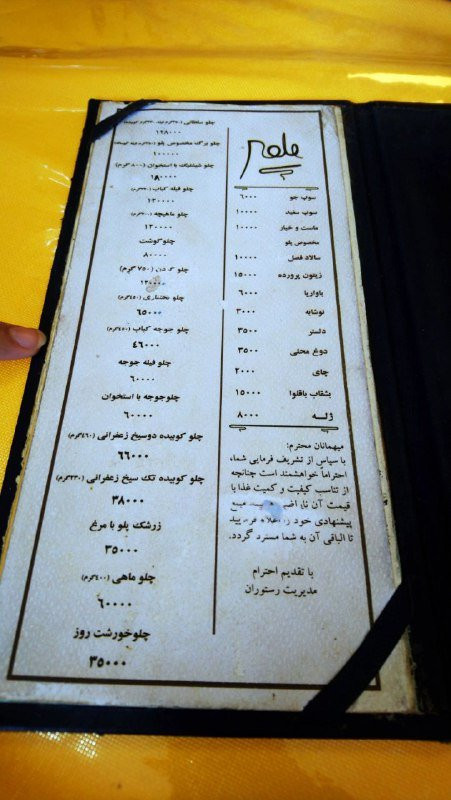 سوپ جو ۶۰۰۰
سوپ سفید ۱۰۰۰۰
ماست و خیار ۱۰۰۰۰
مخصوص پلو
سالاد فصل ۱۰۰۰۰
زیتون پرورده ۱۵۰۰۰
باواریا ۶۰۰۰
نوشابه ۳۰۰۰
دلستر ۳۵۰۰
دوغ محلی ۳۵۰۰
چای ۲۰۰۰
بشقاب باقلوا ۱۵۰۰۰
ژلـه ۸۰۰۰
میهمانان محترم:
با سپاس از تشریف فرمایی شما،
احتراماً خواهشمند است چنانچه
از تناسب کیفیت و کمیت غذا با
قیمت آن
پیشنهادی خود را
تا الباقی آن به شما مسترد گردد.
با تقدیم احترام
مدیریت رستوران
چلو سلطانی
۱۹۸۰۰۰
چلو برگ مخصوص پلو
۱۰۰۰۰۰
چلو شیشلیک با استخوان
۱۸۰۰۰۰
چلو فیله کباب
۱۳۰۰۰۰
چلو ماهیچه
۱۲۰۰۰۰
چلوگوشت
۸۰۰۰۰
چلو گردن (۷۵۰ گرم)
۱۲۰۰۰۰
چلو بختیاری (۴۵۰گرم)
۶۵۰۰۰
چلو جوجه کباب (۴۵۰گرم)
۴۶۰۰۰
چلو فیله جوجه
۶۰۰۰۰
چلوجوجه با استخوان
۶۰۰۰۰
چلو کوبیده دوسیخ زعفرانی (۴۶۰گرم)
۶۶۰۰۰
چلو کوبیده تک سیخ زعفرانی (۲۳۰گرم)
۳۸۰۰۰
زرشک پلو با مرغ
۳۵۰۰۰
چلو ماهی (۴۰۰گرم)
۶۰۰۰۰
چلوخورشت روز
۳۵۰۰۰